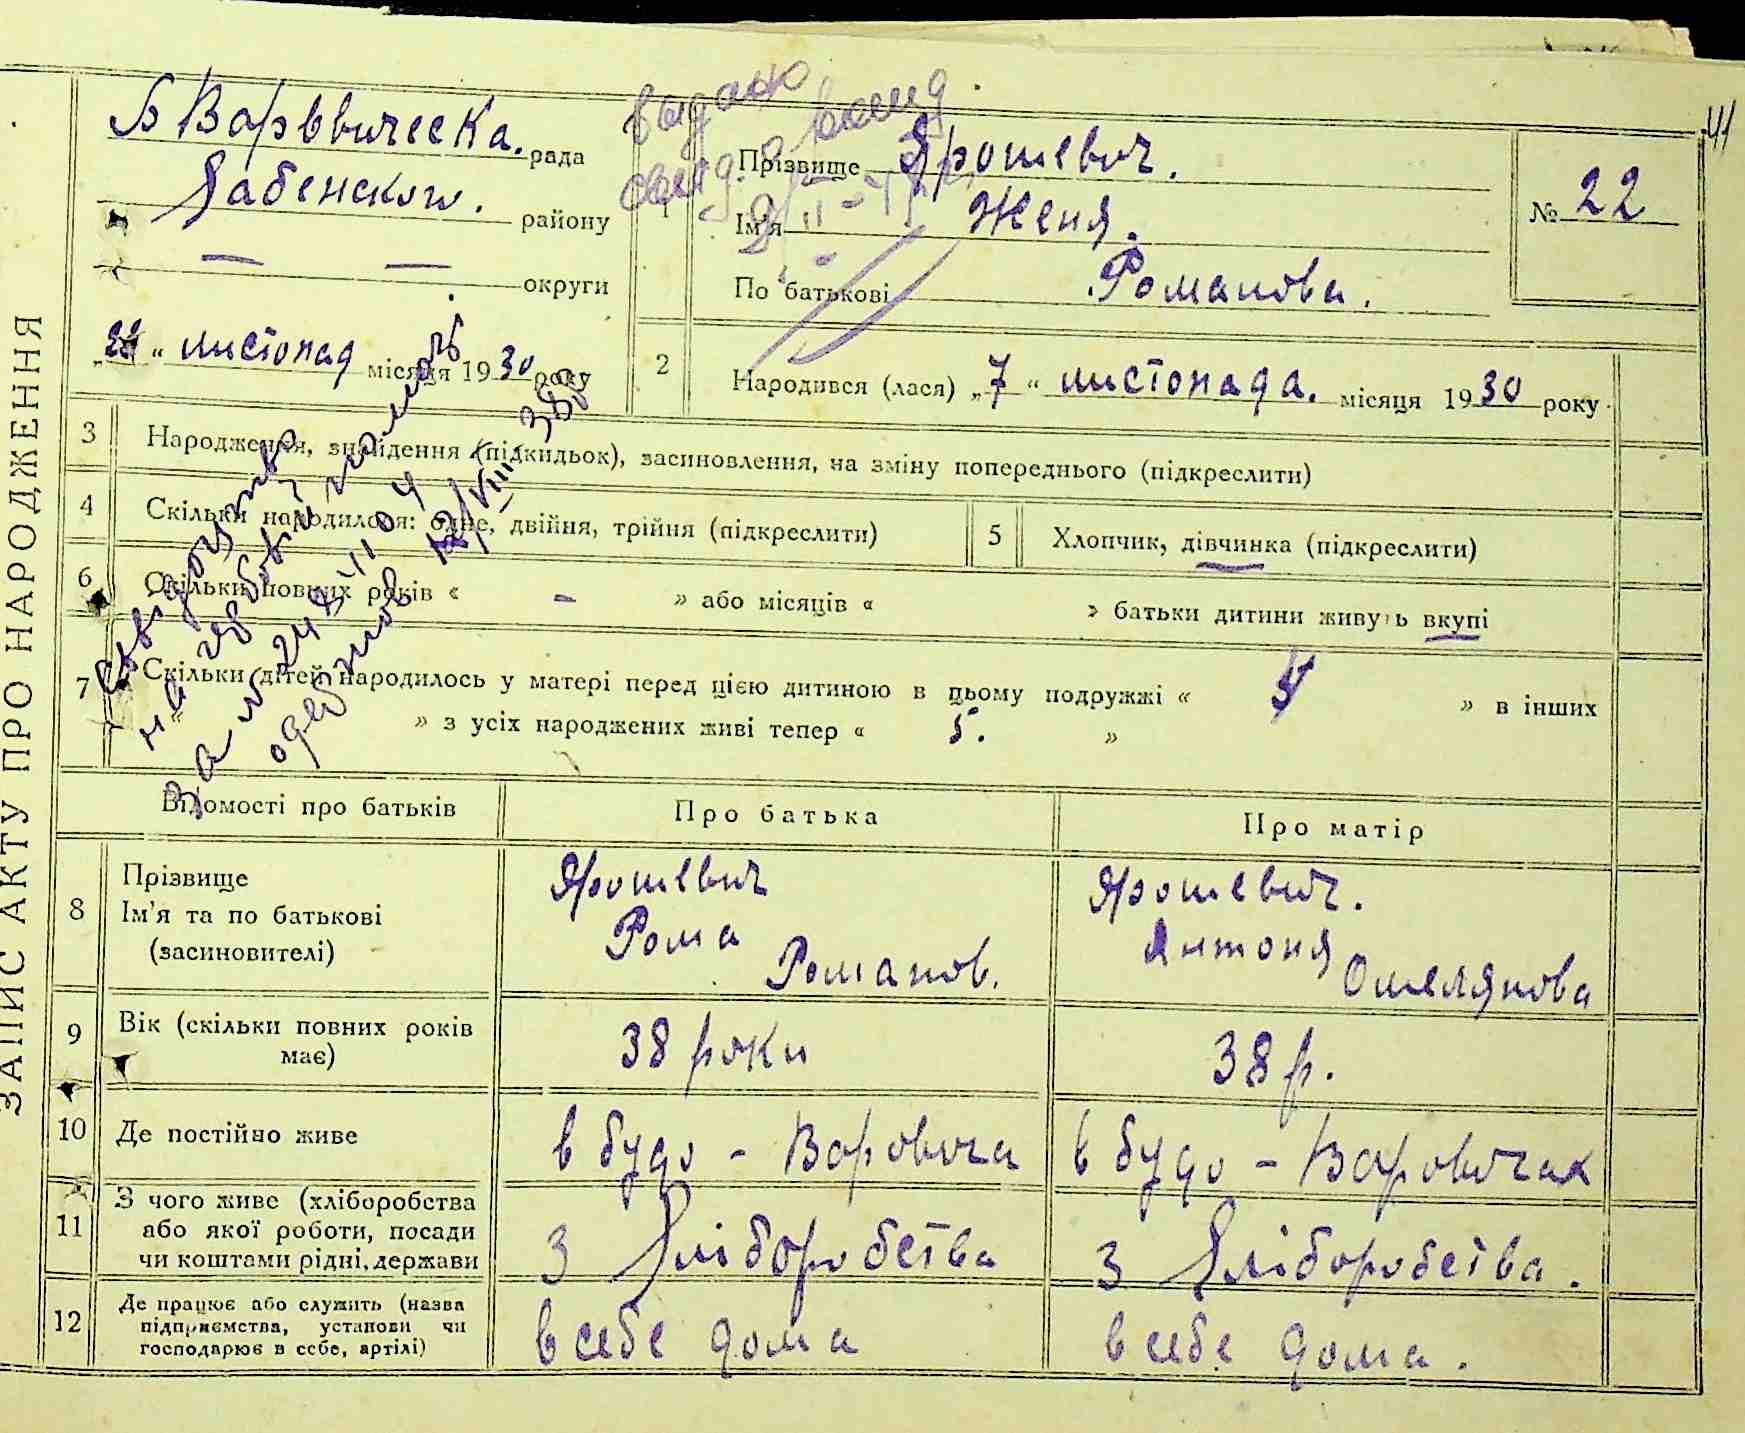 41
ЗАПИС АКТУ ПРО НАРОДЖЕННЯ
Б Варввическа. рада
району
— — округи
" листопад місяця 1930 року
видано
свид.
1
Прізвище Ярошевич.
Ім'я Женя.
По батькові Романова.
№ 22
2
Народився (лася) „7" листопада. місяця 1930 року
3
Народження, знайдення (підкидьок), засиновлення, на зміну попереднього (підкреслити)
4
Скільки народилося: одне, двійня, трійня (підкреслити)
5
Хлопчик, дівчинка (підкреслити)
6
Скільки повних років « – » або місяців « » батьки дитини живуть вкупі
7
Скільки дітей народилось у матері перед цією дитиною в цьому подружжі « » в інших
« » з усіх народжених живі тепер « 5. »
за № 24
Відомості про батьків
Про батька
Про матір
8
Прізвище
Ім'я та по батькові
(засиновителі)
Ярошевич
Рома
Романов.
Ярошевич.
Янтоня
Омелянова
9
Вік (скільки повних років
має)
38 роки
38 р.
10
Де постійно живе
в будо - Варовича
в будо - Варовичах
11
З чого живе (хліборобства
або якої роботи, посади
чи коштами рідні, держави
З Хліборобства
З Хліборобства.
12
Де працює або служить (назва
підприємства, установи чи
господарює в себе, артілі)
в себе дома
в себе дома.